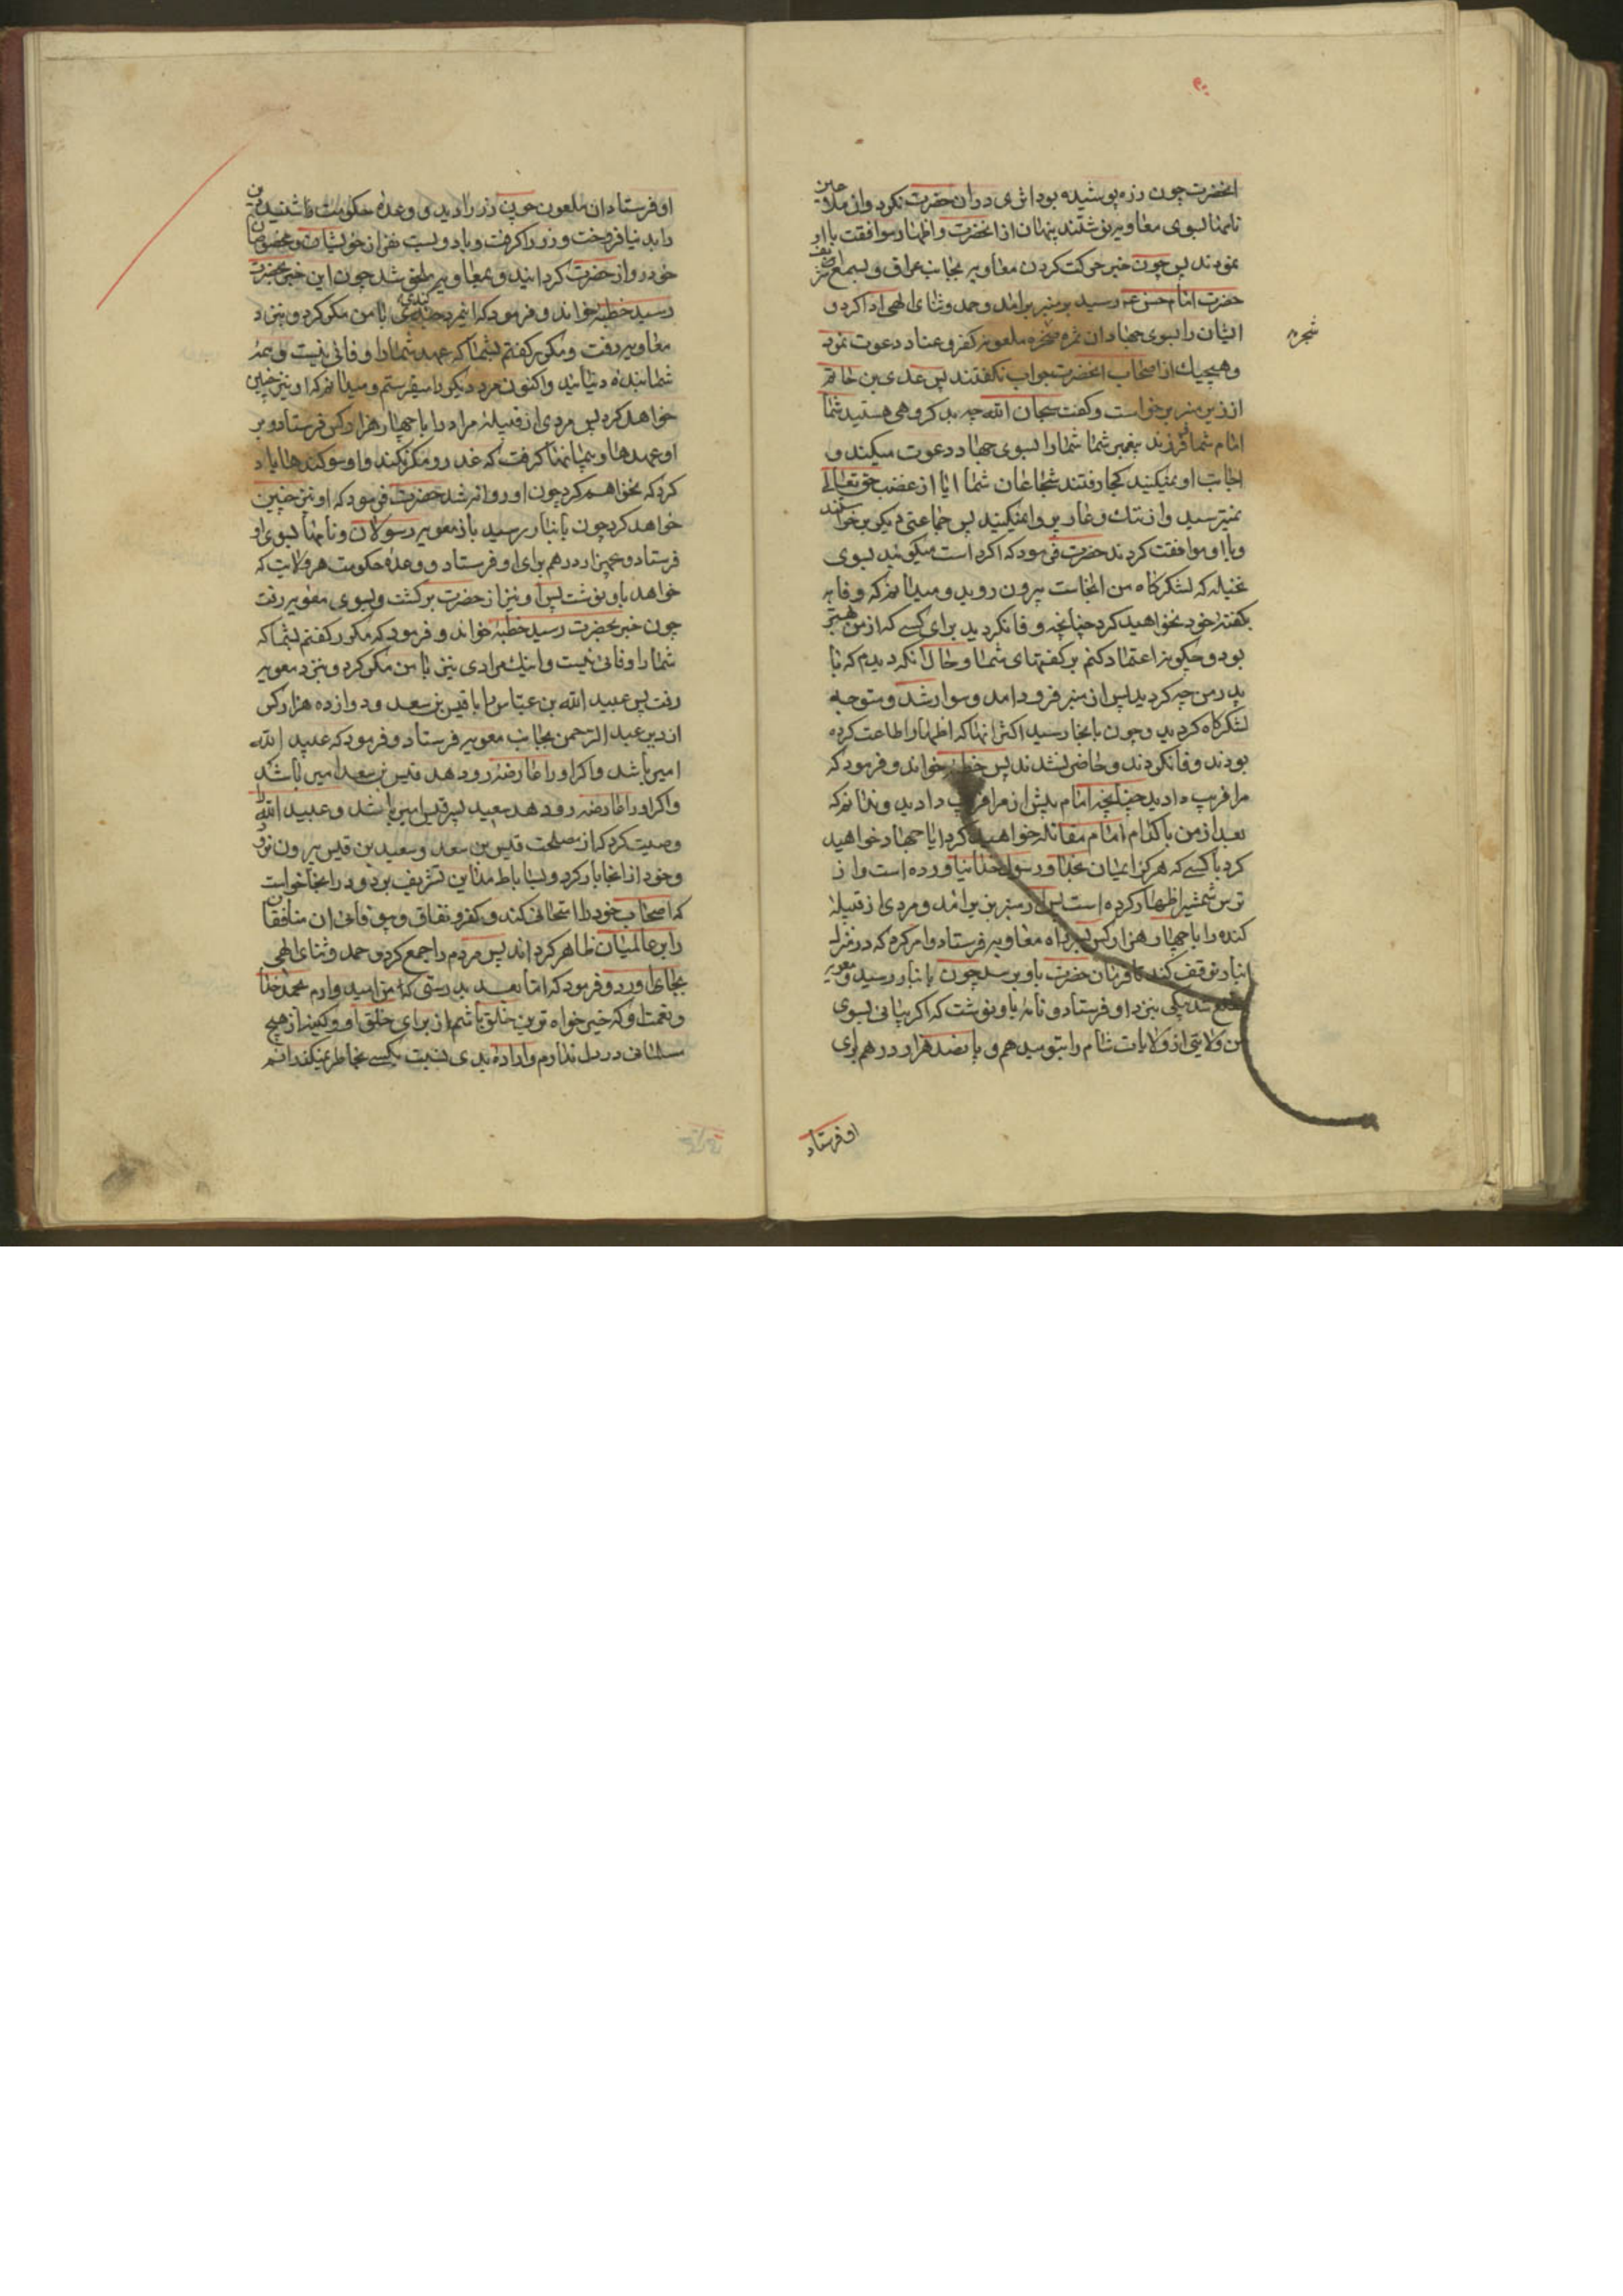 انحضرت چون زره پوشیده بود اثری دران حضرت نکرد وان ملاعین
نامها بسوی معاویه نوشتند پنهان از انحضرت و اظهار موافقت با او
نمودند پس چون خبر حرکت کردن معاویه بجانب عراق و بسمع اشرف
حضرت امام حسن عم رسید بر منبر برامد و حمد و ثنای الهی ادا کرد و
ایشان را بسوی جهاد ان ثمره ملعونه کفر و عناد دعوت نمود
شجره
و هیچیک از اصحاب انحضرت جواب نکفتند پس عدی بن حاتم
از زیر منبر برخواست و کفت سبحان الله چه بد کروهی هستید شما
امام شما و فرزند پیغمبر شما شما را بسوی جهاد دعوت میکند و
اجابت او نمیکنید کجا رفتند شجاعان شما ایا از غضب حق تعالی
نمیترسید و از ننک و عار پروا نمیکنید پس جماعتی دیکر برخواستند
و با او موافقت کردند حضرت فرمود که اکر راست میکوئید بسوی
نخیله که لشکرکاه من انجاست بیرون روید و میدانم که وفا به
بکفته خود نخواهید کرد چنانچه وفا نکردید برای کسی که از من بهتر
بود و چکونه اعتماد کنم بر کفتهای شما و حال انکه دیدم که با
پدر من چه کردید پس از منبر فرود امد و سوار شد و متوجه
لشکرکاه کردید و چون بانجا رسید اکثر انها که اظهار اطاعت کرده
بودند وفا نکردند و حاضر نشدند پس خطبه خواند و فرمود که
مرا فریب دادید چنانچه امام پیش از مرا فریب دادید و ندانم که
بعد از من با کدام امام مقاتله خواهید کرد ایا جهاد خواهید
کرد با کسی که هرکز ایمان بخدا و رسول خدا نیاورده است و از
ترس شمشیر اظهار کرده است پس از منبر بزیر امد و مردی از قبیله
کنده را با چهار هزار کس بر سر راه معاویه فرستاد و امر کرد که در منزل
انبار توقف کند تا فرمان حضرت باو برسد چون بانبار رسید و معویه
مطلع شد پیکی بنزد او فرستاد و نامه باو نوشت که اکر بیائی بسوی
من ولایتی از ولایات شام را بتو میدهم و پانصد هزار درهم برای
او فرستاد
او فرستاد ان ملعون چون زر را دید و وعده حکومت را شنید دین
را بدنیا فروخت و زر را کرفت و با دویست نفر از خویشان و مخصوصان
خود رو از حضرت کردانید و بمعاویه ملحق شد چون این خبر بحضرت
رسید خطبه خواند و فرمود که این مرد کندی با من مکر کرد و بنزد
معاویه رفت و مکرر کفتم بشما که عهد شما را وفائی نیست و همه
شما بنده دنیائید و اکنون مرد دیکر را میفرستم و میدانم که او نیز چنین
خواهد کرد پس مردی از قبیله مراد را با چهار هزار کس فرستاد و بر
او عهدها و پیمانها کرفت که غدر و مکر نکند و او سوکندها یاد
کرد که نخواهم کرد چون او روانه شد حضرت فرمود که او نیز چنین
خواهد کرد چون بانبار رسید باز معویه رسولان و نامها بسوی او
فرستاد و پنجهزار درهم برای او فرستاد و وعده حکومت هر ولایت که
خواهد باو نوشت پس او نیز از حضرت برکشت و بسوی معویه رفت
چون خبر بحضرت رسید خطبه خواند و فرمود که مکرر کفتم بشما که
شما را وفائی نیست و اینک مرادی نیز با من مکر کرد و بنزد معویه
رفت پس عبید الله بن عباس را با قیس بن سعد و دوازده هزار کس
از دیر عبد الرحمن بجانب معویه فرستاد و فرمود که عبید الله
امیر باشد و اکر او را عارضه رو دهد قیس بن سعد امیر باشد
و اکر او را عارضه رو دهد سعید پسر قیس امیر باشد و عبید الله را
وصیت کرد که از مصلحت قیس بن سعد و سعید بن قیس بیرون نرود
و خود از انجا بار کرد و بساباط مداین تشریف برد و در انجا خواست
که اصحاب خود را امتحان کند و کفر و نفاق و بیوفائی ان منافقان
را بر عالمیان ظاهر کرداند پس مردم را جمع کرد و حمد و ثنای الهی
بجای اورد و فرمود که اما بعد بدرستی که من امید وارم بحمد خدا
و نعمت او که خیر خواه ترین خلق باشم از برای خلق او و کینه از هیچ
مسلمانی در دل ندارم و اراده بدی نسبت بکسی بخاطر نمیکذرانم